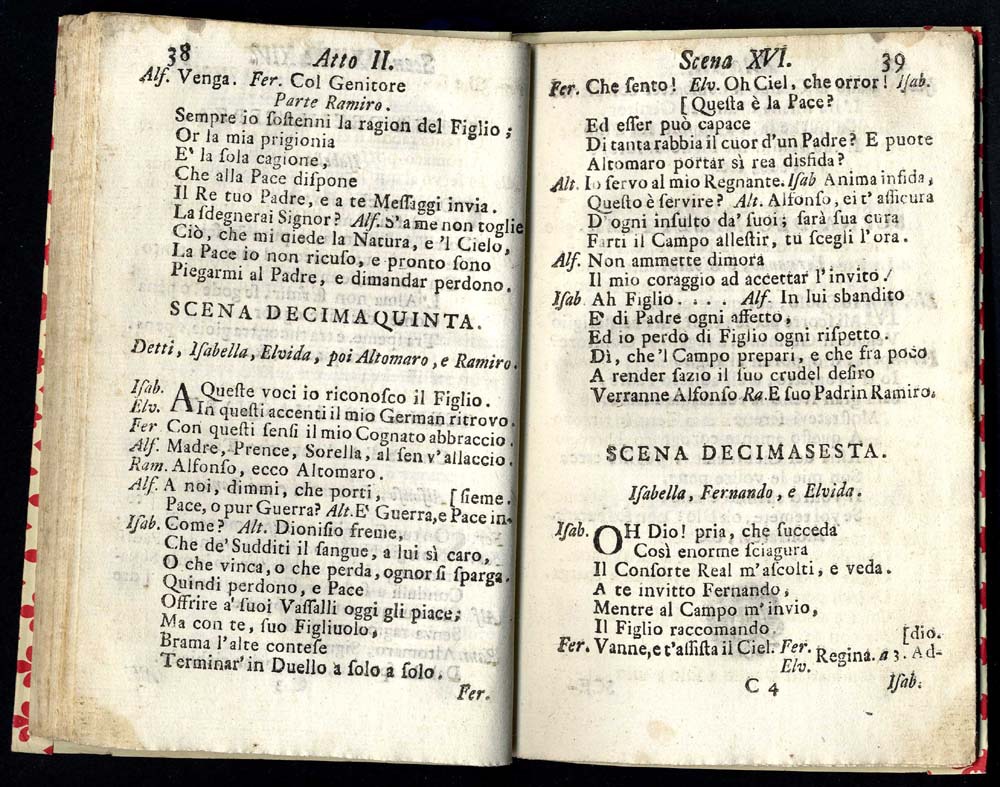 38 Atto II.
Alſ. Venga. Fer. Col Genitore
Parte Ramiro.
Sempre io ſoſtenni la ragion del Figlio;
Or la mia prigionia
E' la ſola cagione,
Che alla Pace diſpone
Il Re tuo Padre, e a te Meſſaggi invia.
La ſdegnerai Signor? Alf. S'a me non toglie
Ciò, che mi diede la Natura, e 'l Cielo,
La Pace io non ricuſo, e pronto ſono
Piegarmi al Padre, e dimandar perdono.
SCENA DECIMAQUINTA.
Detti, Iſabella, Elvida, poi Altomaro, e Ramiro.
Iſab. A Queſte voci io riconoſco il Figlio.
Elv. In queſti accenti il mio German ritrovo.
Fer Con queſti ſenſi il mio Cognato abbraccio.
Alf. Madre, Prence, Sorella, al ſen v'allaccio.
Ram. Alfonſo, ecco Altomaro.
Alf. A noi, dimmi, che porti, [ſieme.
Pace, o pur Guerra? Alt. E' Guerra, e Pace in-
Iſab. Come? Alt. Dioniſio freme,
Che de' Sudditi il ſangue, a lui sì caro,
O che vinca, o che perda, ognor ſi ſparga.
Quindi perdono, e Pace
Offrire a' ſuoi Vaſſalli oggi gli piace;
Ma con te, ſuo Figliuolo,
Brama l'alte conteſe
Terminar' in Duello a ſolo a ſolo.
Fer.
Scena XVI. 39
Fer. Che ſento! Elv. Oh Ciel, che orror! Iſab.
[Queſta è la Pace?
Ed eſſer può capace
Di tanta rabbia il cuor d'un Padre? E puote
Altomaro portar sì rea disfida?
Alt. Io ſervo al mio Regnante. Iſab Anima infida,
Queſto è ſervire? Alt. Alfonſo, ei t'aſſicura
D'ogni inſulto da' ſuoi; ſarà ſua cura
Farti il Campo alleſtir, tu ſcegli l'ora.
Alf. Non ammette dimora
Il mio coraggio ad accettar l'invito.
Iſab. Ah Figlio. . . . Alf. In lui sbandito
E' di Padre ogni affetto,
Ed io perdo di Figlio ogni riſpetto.
Dì, che 'l Campo prepari, e che fra poco
A render ſazio il ſuo crudel deſiro
Verranne Alfonſo Ra. E ſuo Padrin Ramiro.
SCENA DECIMASESTA.
Iſabella, Fernando, e Elvida.
Iſab. OH Dio! pria, che ſucceda
Così enorme ſciagura
Il Conſorte Real m'aſcolti, e veda.
A te invitto Fernando,
Mentre al Campo m'invio,
Il Figlio raccomando. [dio.
Fer. Vanne, e t'aſſiſta il Ciel. Fer. Elv. Regina. a 3. Ad-
C 4 Iſab.